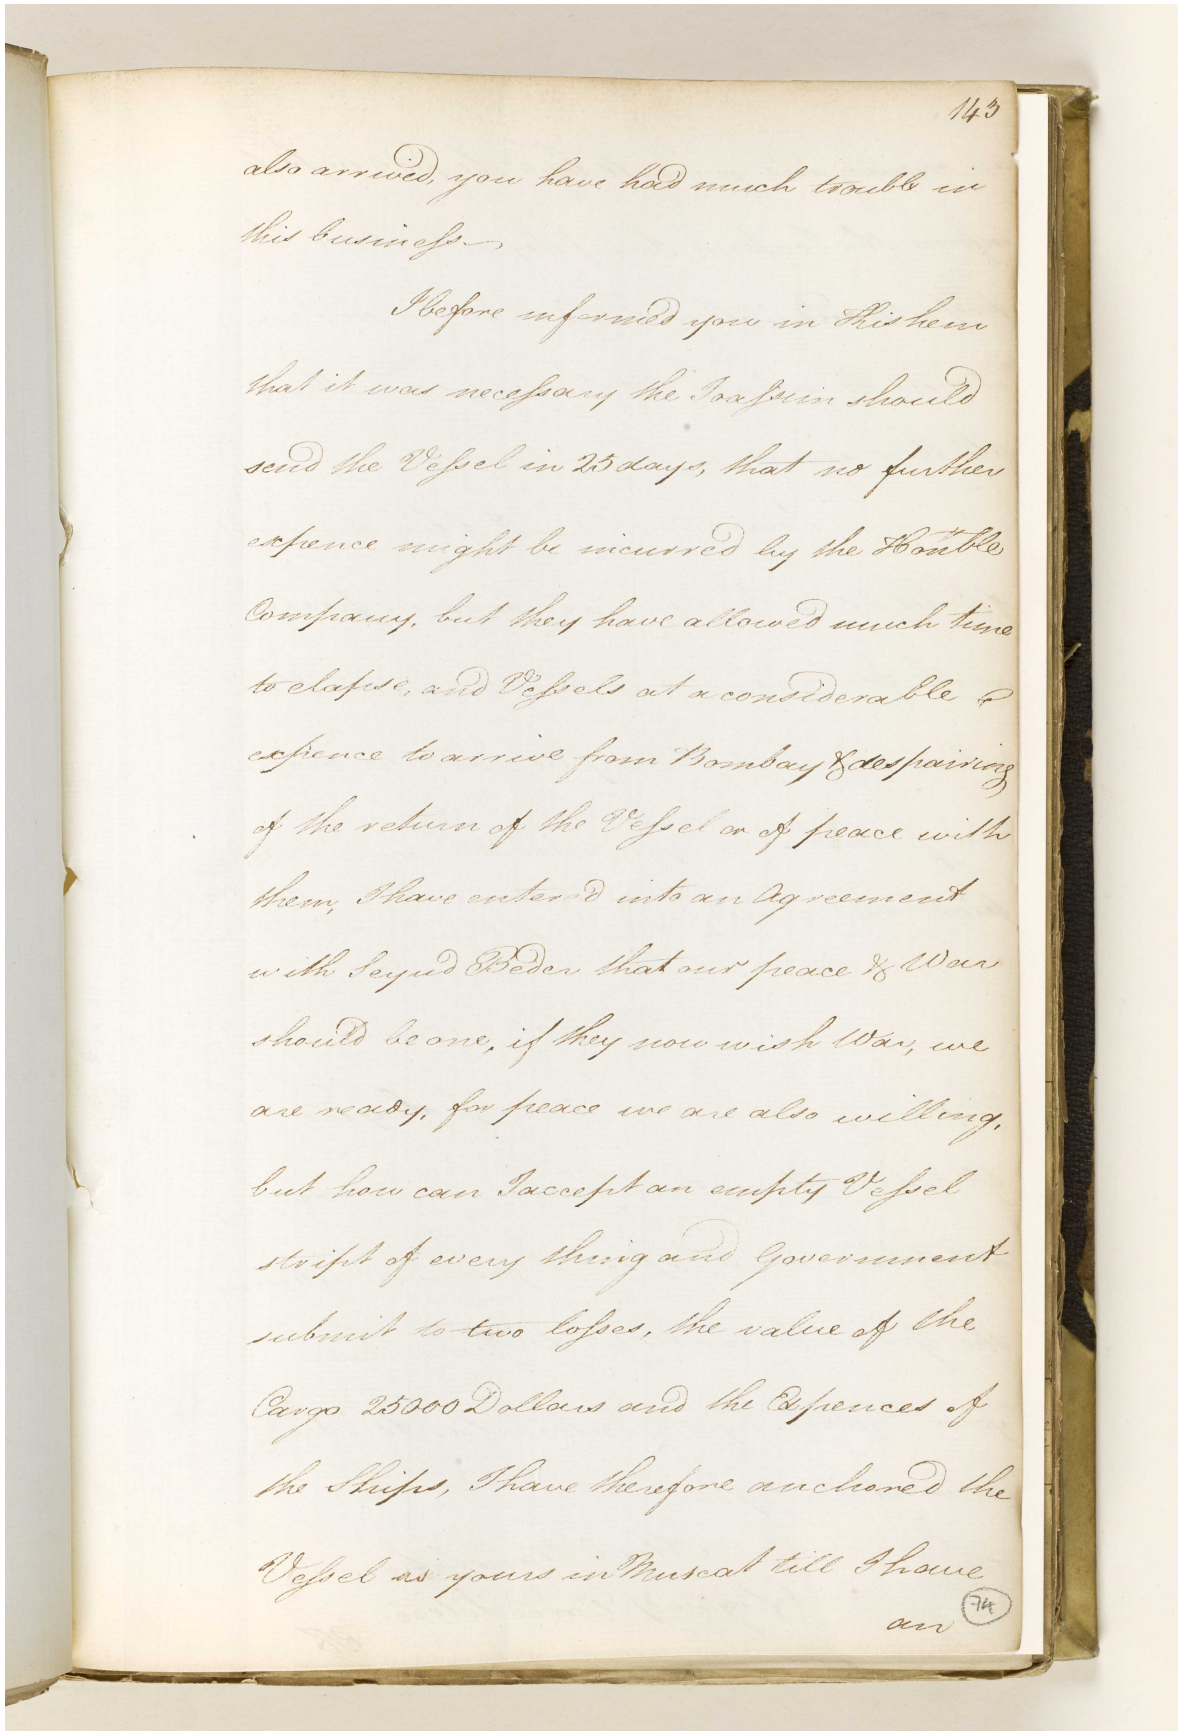 143
also arrived, you have had much trouble in
this business—
I before informed you in Kishem
that it was necessary the Joassim should
send the Vessel in 25 days, that no further
expence might be incurred by the Honble
Company, but they have allowed much time
to elapse, and Vessels at a considerable
expence to arrive from Bombay & despairing
of the return of the Vessel or of peace with
them, I have entered into an Agreement
with Seyud Beder that our peace & War
should be one, if they now wish War, we
are ready, for peace we are also willing,
but how can I accept an empty Vessel
stript of every thing and Government
submit to two losses, the value of the
Cargo 25000 Dollars and the Expences of
the Ships, I have therefore anchored the
Vessel as yours in Muscat till I have
an
74